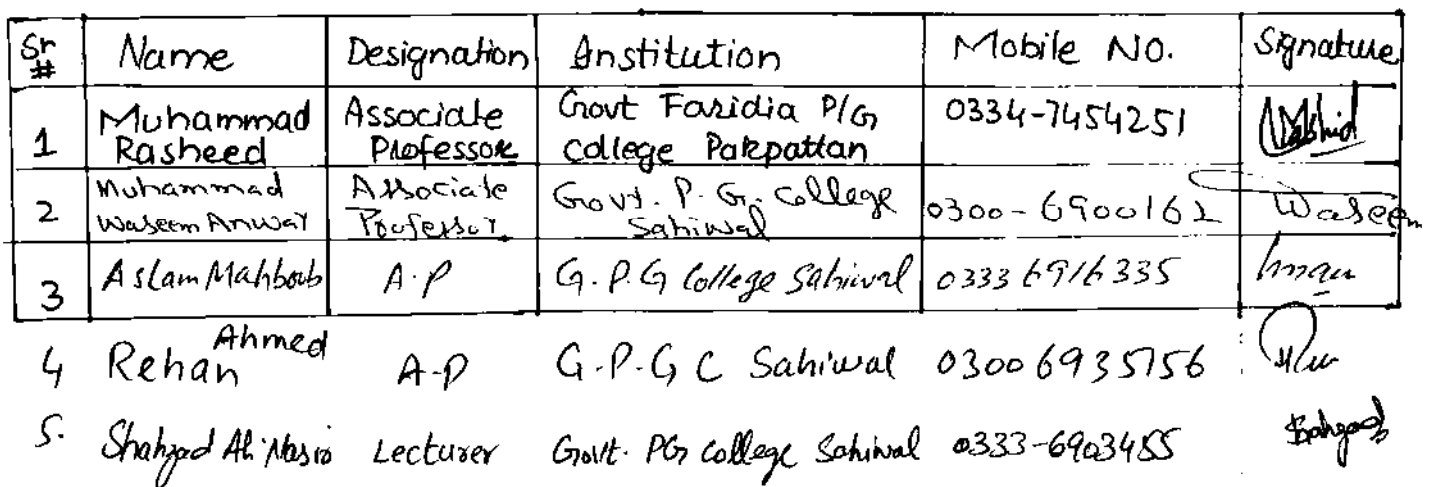 Sr # Name Designation Institution Mobile No. Signature
1 Muhammad Rasheed Associate Professor Govt Faridia P/G College Pakpattan 0334-7454251 Rashid
2 Muhammad Waseem Anwar Associate Professor Govt. P.G. College Sahiwal 0300-6900162 Waseem
3 Aslam Mahboob A.P G.P.G College Sahiwal 0333 6916335
4 Rehan Ahmed A-P G.P.G C Sahiwal 0300 6935756
5. Shahzad Ali Nasir Lecturer Govt. PG College Sahiwal 0333-6903455